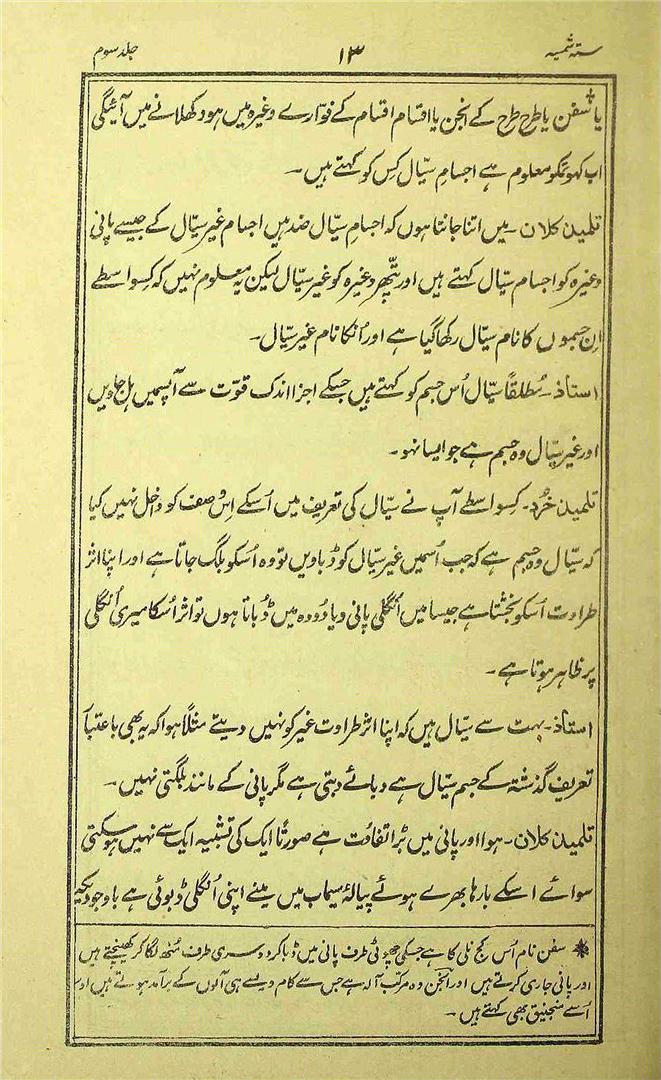 ستہ شمیہ ۱۳ جلد سوم
یا سفن یا طرح طرح کے انجن یا اقسام اقسام کے فوّارے وغیرہ میں ہو دکھلانے میں آئینگی
اب کہو تمکو معلوم ہے اجسامِ سیّال کِس کو کہتے ہیں ۔
تلمیذ کلان ۔ میں اتنا جانتا ہوں کہ اجسامِ سیّال ضد ہیں اجسام غیر سیّال کے جیسے پانی
وغیرہ کو اجسام سیّال کہتے ہیں اور پتّھر وغیرہ کو غیر سیّال لیکن یہ معلوم نہیں کہ کِسواسطے
اِن جسموں کا نام سیّال رکھا گیا ہے اور اُنکا نام غیر سیّال ۔
استاذ ۔ مُطلقاً سیّال اُس جسم کو کہتے ہیں جسکے اجزا اندک قوّت سے آپسمیں ہل جاویں
اور غیر سیّال وہ جسم ہے جو ایسا نہو ۔
تلمیذ خُرد ۔ کِسواسطے آپ نے سیّال کی تعریف میں اُسکے اِس وصف کو داخل نہیں کیا
کہ سیّال وہ جسم ہے کہ جب اُسمیں غیر سیّال کو ڈباویں تو وہ اُسکو بلگ جاتا ہے اور اپنا اثر
طراوت اُسکو بخشتا ہے جیسا میں اُنگلی پانی و یا دُودہ میں ڈُباتا ہوں تو اثر اُسکا میری اُنگلی
پر ظاہر ہوتا ہے ۔
استاذ ۔ بہت سے سیّال ہیں کہ اپنا اثر طراوت غیر کو نہیں دیتے مثلاً ہوا کہ یہ بھی باعتبار
تعریف گذشتہ کے جسم سیّال ہے دبائے دبتی ہے مگر پانی کے مانند بلگتی نہیں ۔
تلمیذ کلان ۔ ہوا اور پانی میں بڑا تفاوُت ہے صورتاً ایک کی تشبیہ ایک سے نہیں ہو سکتی
سوائے اسکے بارہا بھرے ہوئے پیالۂ سیماب میں مینے اپنی اُنگلی ڈبوئی ہے باوجودیکہ
* سفن نام اُس کج نلی کا ہے جسکی چھوٹی طرف پانی میں ڈبا کر دوسری طرف مُنھہ لگا کر کھینچتے ہیں
اور پانی جاری کرتے ہیں اور انجن وہ مرکب آلہ ہے جس سے کام ویسے ہی آلوں کے برآمد ہوتے ہیں اور
اُسے منجنیق بھی کہتے ہیں ۔